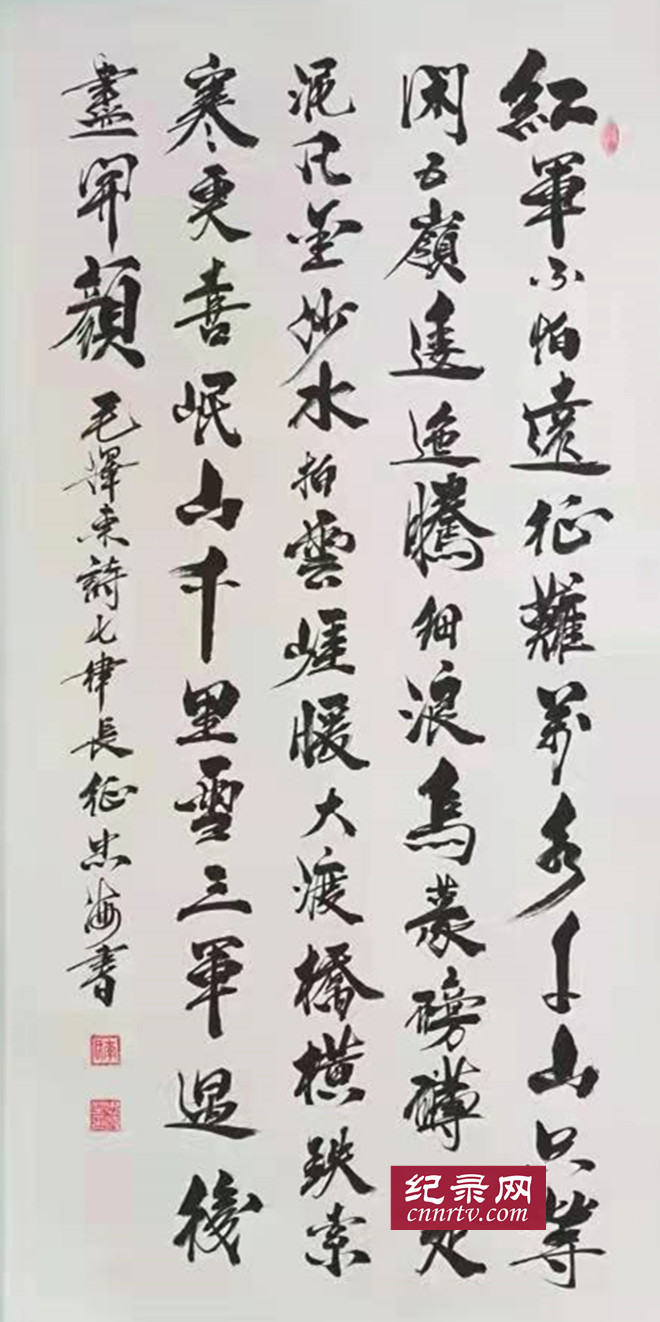 紅軍不怕遠征難萬水千山只等
閑五嶺逶迤騰細浪烏蒙磅礴走
泥丸金沙水拍雲崖暖大渡橋橫鉄索
寒更喜岷山千里雪三軍過後
盡開顏 毛澤東詩七律長征忠海書
纪录网
cnnrtv.com